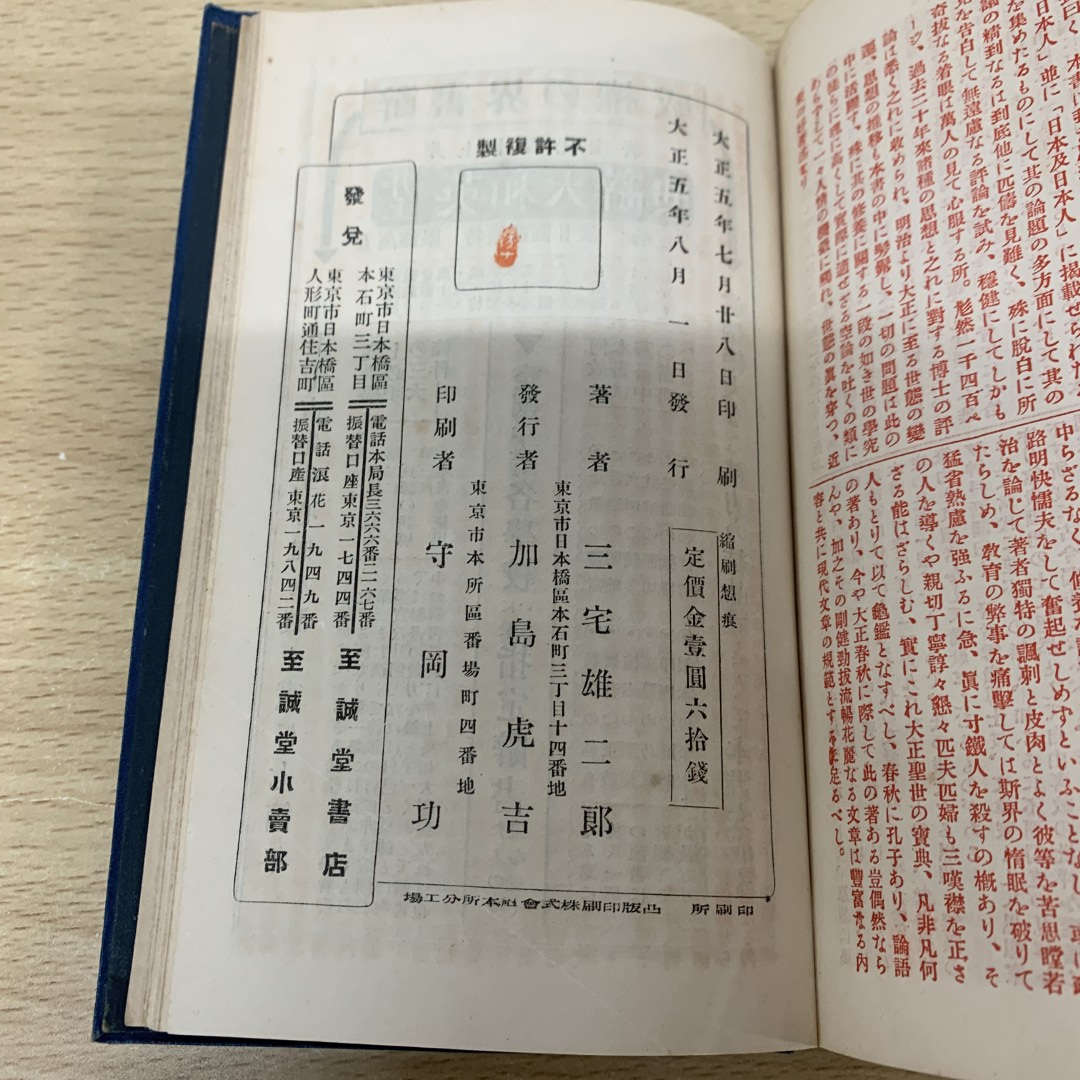 「日本人」並に「日本及日本人」に掲載せられたる
を集めたるものにして其の論題の多方面にして其の
識の精到なるは到底他に匹儔を見難く、殊に脱日に所
見を告白して無遠慮なる評論を試み、穏健にしてしかも
奇拔なる着眼は萬人の見て心服する所。尨然一千四百ペ
ージ、過去二十年來諸種の思想と之れに對する博士の評
論は悉く之れに收められ、明治より大正に至る世態の變
遷、思想の推移も本書の中に髣髴し、一切の問題は此の
中に活躍す、殊に其の修養に關する一段の如き世の學究
の徒らに理に高くして實際に適せざる空論を吐くの類に
あらずして、一々人情の機微に觸れ、世態の眞を穿つ、近
中らざるなく、
路明快懦夫をして奮起せしめずといふことなし、或は政
治を論じて著者獨特の諷刺と皮肉とよく彼等を苦思瞠若
たらしめ、教育の弊事を痛撃しては斯界の惰眠を破りて
猛省熟慮を強ふるに急、眞に寸鐵人を殺すの概あり、そ
の人を導くや親切丁寧諄々懇々匹夫匹婦も三嘆襟を正さ
ざる能はざらしむ、實にこれ大正聖世の寶典、凡非凡何
人もとりて以て龜鑑となすべし、春秋に孔子あり、論語
の著あり、今や大正春秋に際して此の著ある豈偶然なら
んや、加之その剛健勁拔流暢花麗なる文章は豐富なる內
容と共に現代文章の規範とする 足るべし。
大正五年七月廿八日印刷
大正五年八月一日發行
縮刷想痕
定價金壹圓六拾錢
不許複製
著者 三宅雄二郎
東京市日本橋區本石町三丁目十四番地
發行者 加島虎吉
東京市本所區番場町四番地
印刷者 守岡功
發兌
東京市日本橋區
本石町三丁目
電話本局長三六六番二一六七番
振替口座東京一七四四番
至誠堂書店
東京市日本橋區
人形町通住吉町
電話浪花一九四九番
振替口座東京一九八四二番
至誠堂小賣部
印刷所 凸版印刷株式會社本所分工場